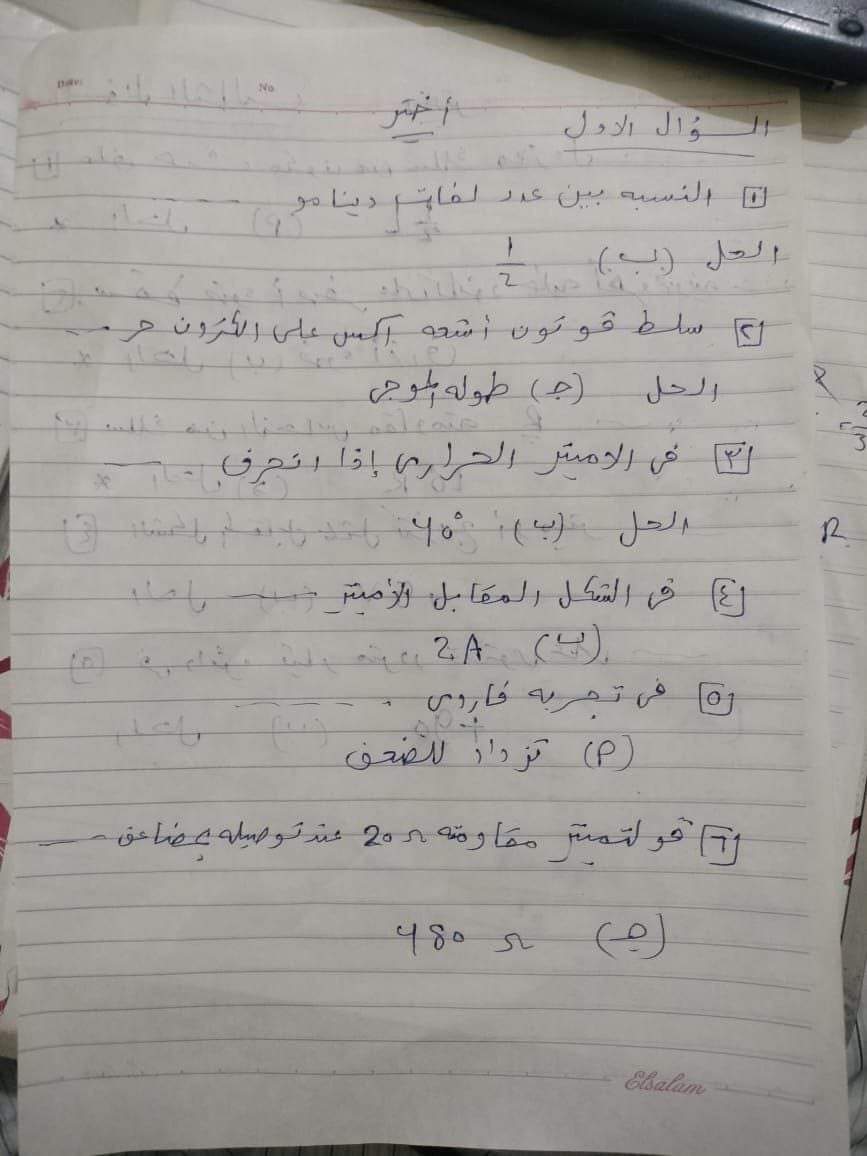 Date: No.
أختر
السؤال الاول
١ النسبه بين عدد لفات دينامو ----
الحل (ب) 1/2
٢ سلط فوتون أشعه اكس على الكترون حر ---
الحل (جـ) طوله الموجى
٣ فى الاميتر الحرارى إذا انحرف ----
الحل (ب) 40°
٤ فى الشكل المقابل الأميتر ----
(ب) 2A
٥ فى تجربه فاروى ----
(P) تزداد للضعف
٦ فولتميتر مقاومته 20Ω عند توصيله بمضاعف ---
(جـ) 480 Ω
Elsalam